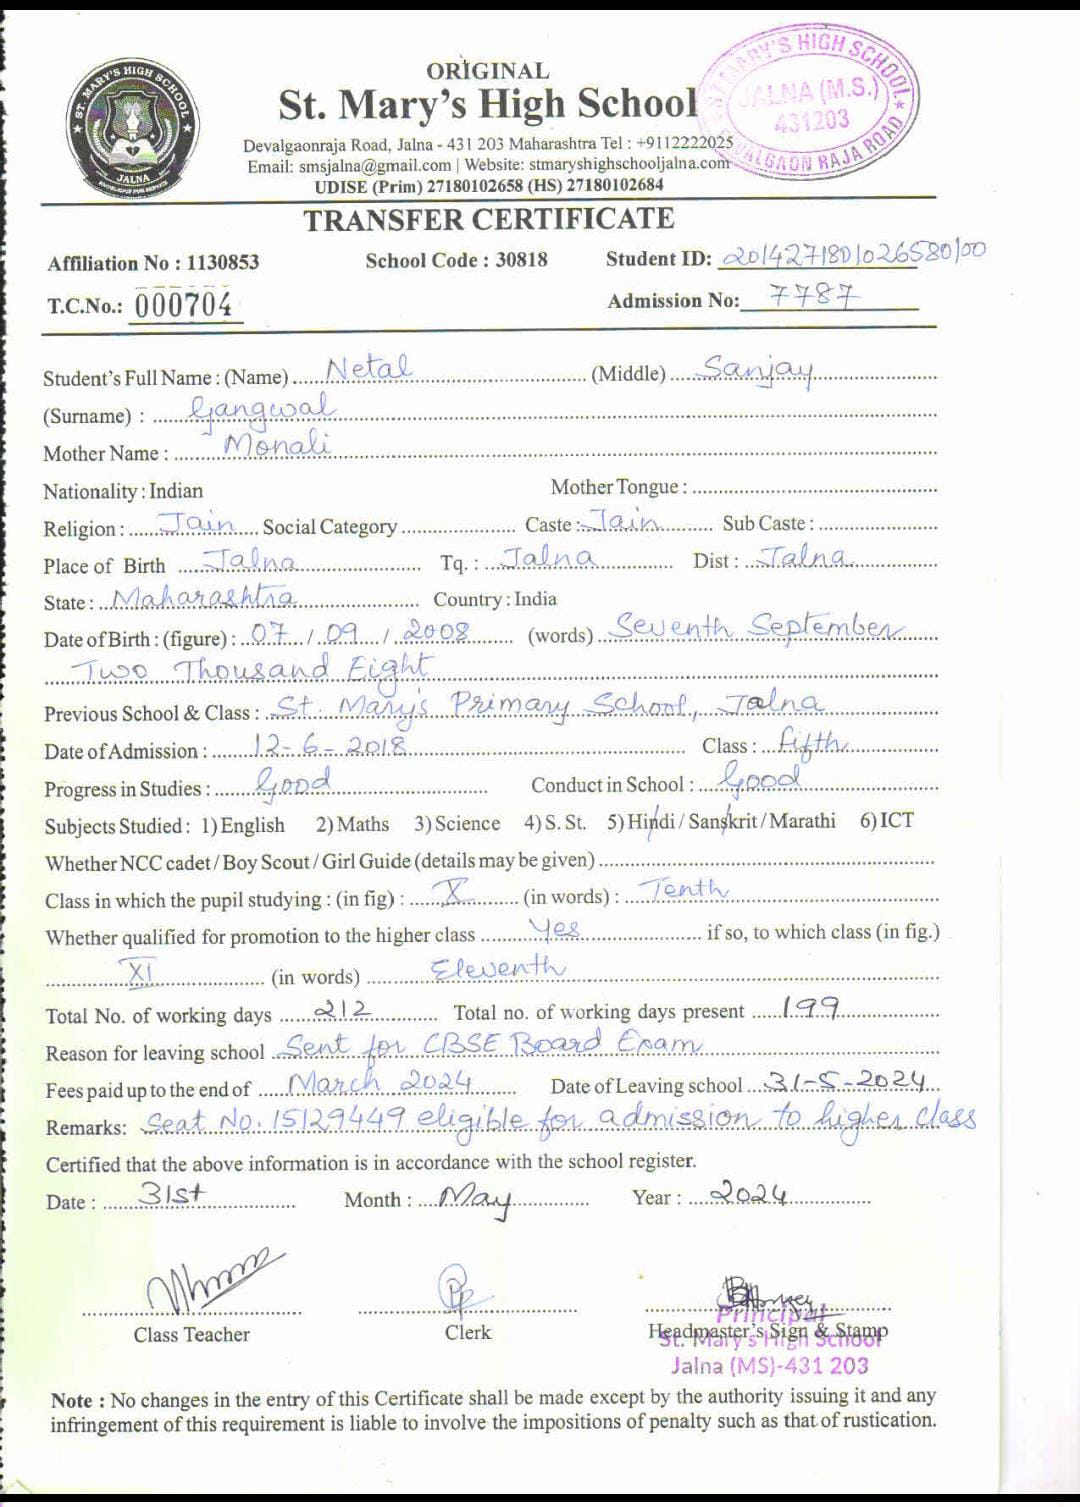 ST. MARY'S HIGH SCHOOL
JALNA
ORIGINAL
St. Mary's High School
Devalgaonraja Road, Jalna - 431 203 Maharashtra Tel : +9112222025
Email: smsjalna@gmail.com | Website: stmaryshighschooljalna.com
UDISE (Prim) 27180102658 (HS) 27180102684
ST. MARY'S HIGH SCHOOL
JALNA (M.S.)
431203
DEVALGAON RAJA ROAD
TRANSFER CERTIFICATE
Affiliation No : 1130853 School Code : 30818 Student ID: 2014271801026580100
T.C.No.: 000704 Admission No: 7787
Student's Full Name : (Name) Netal (Middle) Sanjay
(Surname) : Gangwal
Mother Name : Monali
Nationality : Indian Mother Tongue :
Religion : Jain Social Category Caste : Jain Sub Caste :
Place of Birth Jalna Tq. : Jalna Dist : Jalna
State : Maharashtra Country : India
Date of Birth : (figure) : 07 / 09 / 2008 (words) Seventh September
Two Thousand Eight
Previous School & Class : St. Mary's Primary School, Jalna
Date of Admission : 12-6-2018 Class : fifth
Progress in Studies : Good Conduct in School : Good
Subjects Studied : 1) English 2) Maths 3) Science 4) S. St. 5) Hindi / Sanskrit / Marathi 6) ICT
Whether NCC cadet / Boy Scout / Girl Guide (details may be given)
Class in which the pupil studying : (in fig) : X (in words) : Tenth
Whether qualified for promotion to the higher class Yes if so, to which class (in fig.)
XI (in words) Eleventh
Total No. of working days 212 Total no. of working days present 199
Reason for leaving school Sent for CBSE Board Exam
Fees paid up to the end of March 2024 Date of Leaving school 31-5-2024
Remarks: Seat No. 15129449 eligible for admission to higher class
Certified that the above information is in accordance with the school register.
Date : 31st Month : May Year : 2024
Class Teacher Clerk Headmaster's Sign & Stamp
Principal
St. Mary's High School
Jalna (MS)-431 203
Note : No changes in the entry of this Certificate shall be made except by the authority issuing it and any
infringement of this requirement is liable to involve the impositions of penalty such as that of rustication.